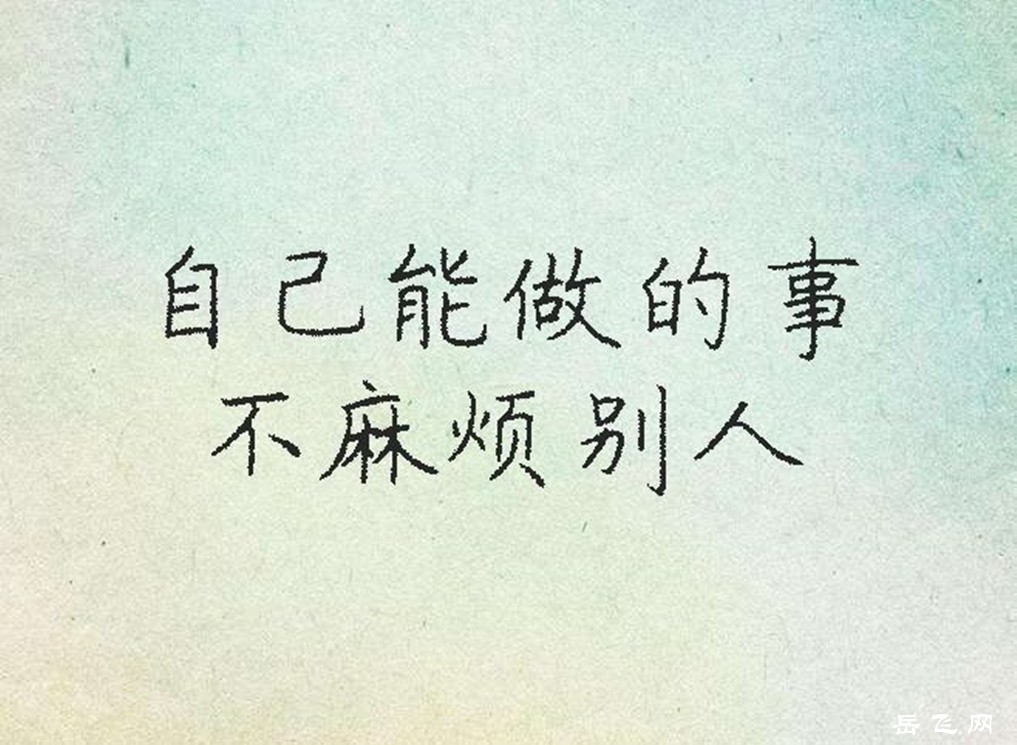 自己能做的事
不麻烦别人
岳飞网